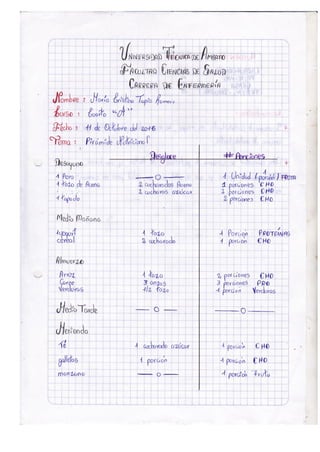 Universidad Técnica de Ambato
Facultad Ciencias de Salud
Carrera de Enfermería
Nombre : María Cristina Tapia
Curso : Cuarto "A"
Fecha : 11 de Octubre del 2016
Tema : Pirámide Nutricional
Desglose # Porciones
Desayuno
1 Pera — o — 1 Unidad 1 porción FRUTA
1 taza de Avena 2 cucharadas Avena 2 porciones CHO
2 cucharas azúcar 2 porciones CHO
1 tapado 2 porciones CHO
Media Mañana
yogurt 1 taza 1 Porción PROTEÍNAS
cereal 2 cucharada 1 porción CHO
Almuerzo
Arroz 1 taza 2 porciones CHO
Carne 3 onzas 3 porciones PRO
Verduras 1/2 taza 1 porción Verduras
Media Tarde — o — — o —
Merienda
Té 1 cucharada azúcar 1 porción CHO
galletas 1 porción 1 porción CHO
manzana — o — 1 porción Fruta